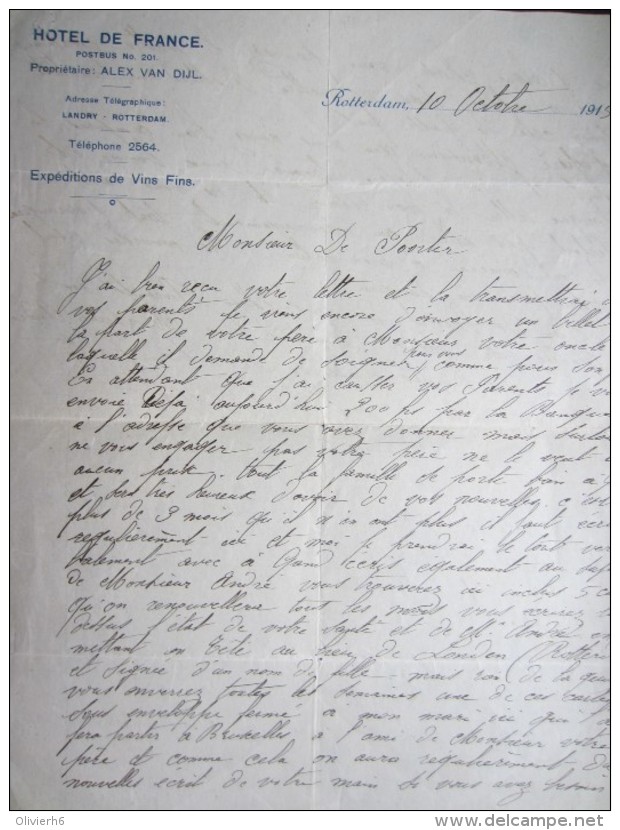 HOTEL DE FRANCE.
POSTBUS No. 201.
Propriétaire: ALEX VAN DIJL.
Adresse Télégraphique:
LANDRY - ROTTERDAM.
Téléphone 2564.
Expéditions de Vins Fins.
Rotterdam, 10 Octobre 191
Monsieur De Poorter
J'ai bien reçu votre lettre et la transmettrai
vos parents je vous encore d'envoyer un billet
la part de votre père à Monsieur votre oncle
laquelle il demande de soigner pour vous comme pour son
En attendant que j'ai vos Parents je
envoie Déjà aujourd'hui 200 par la Banque
à l'adresse que vous avez donner mais surtout
ne vous engager pas votre père ne le veut
aucun prix tout la famille se porte bien
et sera très heureux d'avoir de vos nouvelles c'est
plus de 3 mois qu'il n'en ont plus il faut
regulièrement ici et moi je prendrai le tout
balement avec à Gand egalement au
de Monsieur André vous trouverez ici inclus 5
qu'on renouvellera tout les mois vous
dessus l'état de votre santé et de Mr André en
mettant en tête au lieu de Londen (Rotter
et signée d'un nom de fille mais rien de la
vous enverrez toutes les semaines une de ces cartes
sous enveloppe fermé à mon mari ici qui
fera partir à Bruxelles à l'ami de Monsieur votre
père et comme cela on aura regulierement
nouvelles écrit de votre main si vous avez besoin
Olivierh6
www.delcampe.net